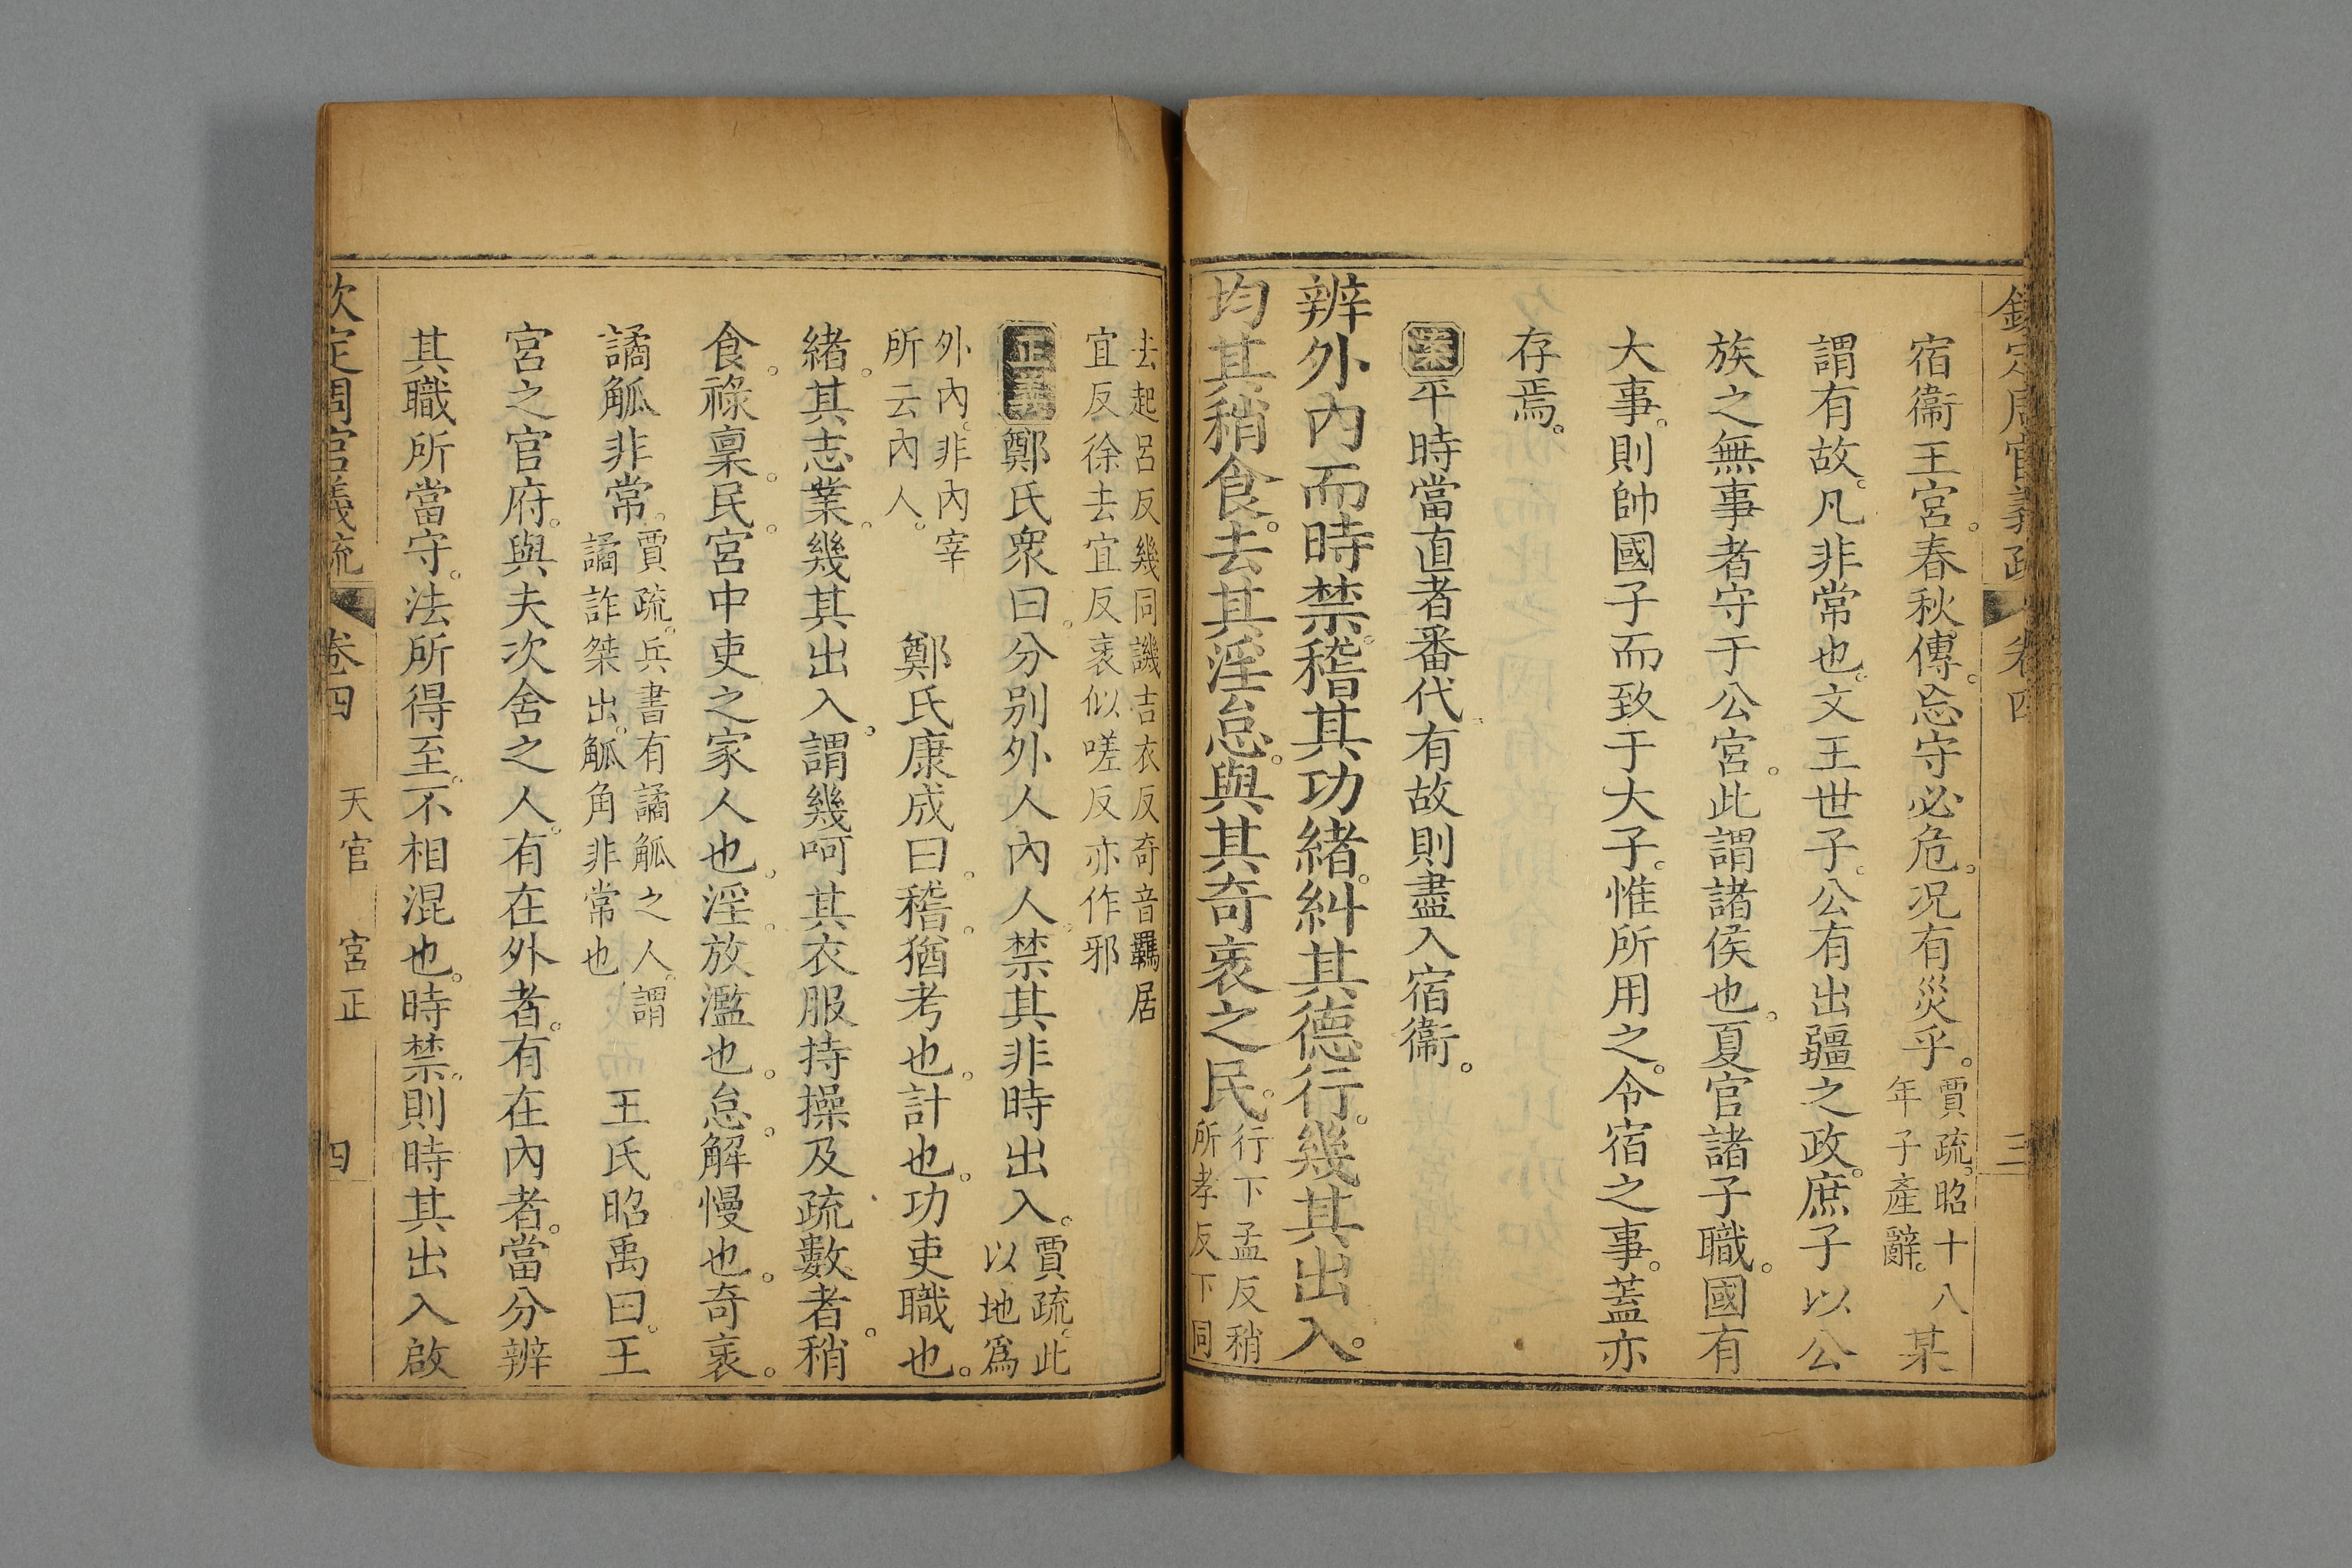 欽定周官義疏 卷四 三
宿衞王宮。春秋傳。忘守必危。况有災乎。賈疏。昭十八年子產辭。某
謂有故。凡非常也。文王世子。公有出疆之政。庶子以公
族之無事者守于公宮。此謂諸侯也。夏官諸子職。國有
大事。則帥國子而致于大子。惟所用之。令宿之事。蓋亦
存焉。
案平時當直者番代。有故則盡入宿衞。
辨外內而時禁。稽其功緒。糾其德行。幾其出入。
均其稍食。去其淫怠。與其奇衺之民。行下孟反稍所孝反下同
去起呂反幾同譏吉衣反奇音羈居
宜反徐去宜反衺似嗟反亦作邪
正義鄭氏衆曰。分别外人內人。禁其非時出入。賈疏。此以地為
外內。非內宰所云內人。 鄭氏康成曰。稽。猶考也。計也。功吏職也。
緒。其志業。幾其出入。謂幾呵其衣服持操及疏數者。稍
食。祿稟。民。宮中吏之家人也。淫。放濫也。怠。解慢也。奇衺。
譎觚非常。賈疏。兵書有譎觚之人。謂譎詐桀出。觚角非常也。 王氏昭禹曰。王
宮之官府。與夫次舍之人。有在外者。有在內者。當分辨
其職所當守。法所得至。不相混也。時禁。則時其出入啟
欽定周官義疏 卷四 天官 宮正 四